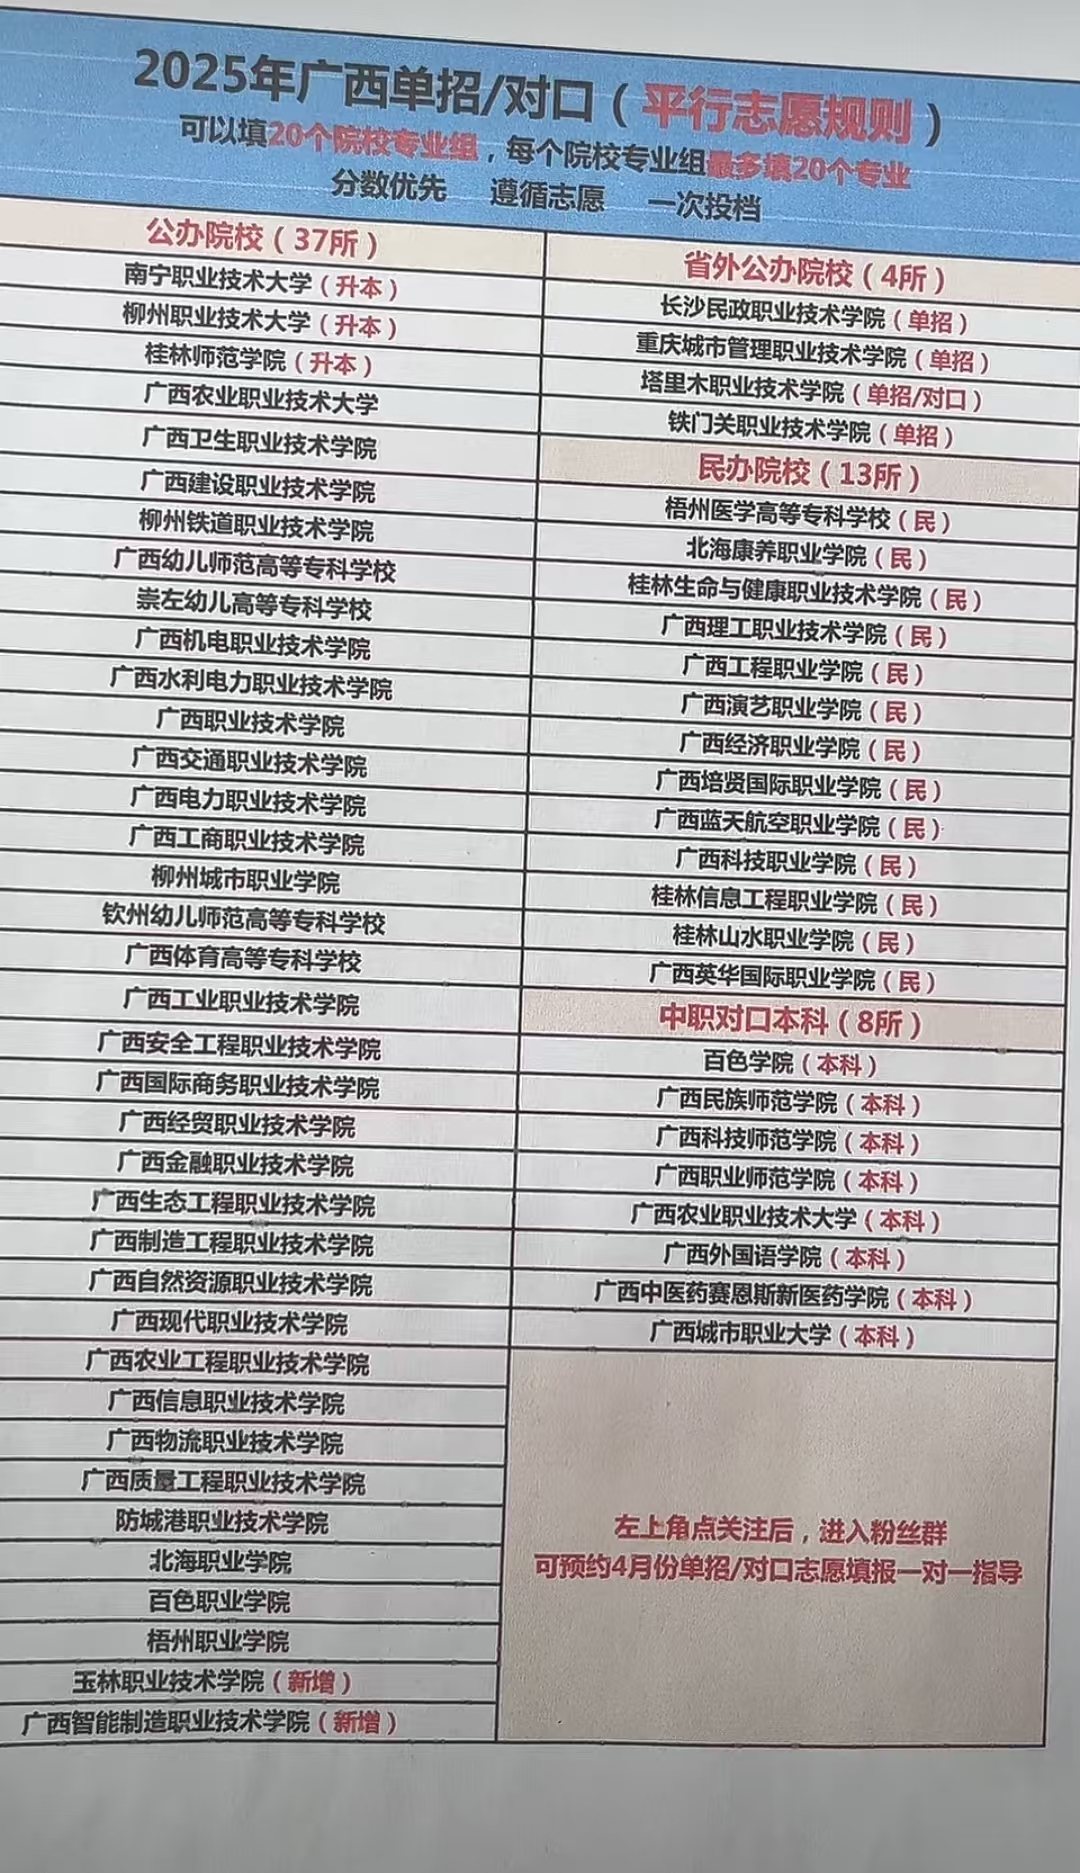 2025年广西单招/对口（平行志愿规则）
可以填20个院校专业组，每个院校专业组最多填20个专业
分数优先 遵循志愿 一次投档
公办院校（37所）
南宁职业技术大学（升本）
柳州职业技术大学（升本）
桂林师范学院（升本）
广西农业职业技术大学
广西卫生职业技术学院
广西建设职业技术学院
柳州铁道职业技术学院
广西幼儿师范高等专科学校
崇左幼儿高等专科学校
广西机电职业技术学院
广西水利电力职业技术学院
广西职业技术学院
广西交通职业技术学院
广西电力职业技术学院
广西工商职业技术学院
柳州城市职业学院
钦州幼儿师范高等专科学校
广西体育高等专科学校
广西工业职业技术学院
广西安全工程职业技术学院
广西国际商务职业技术学院
广西经贸职业技术学院
广西金融职业技术学院
广西生态工程职业技术学院
广西制造工程职业技术学院
广西自然资源职业技术学院
广西现代职业技术学院
广西农业工程职业技术学院
广西信息职业技术学院
广西物流职业技术学院
广西质量工程职业技术学院
防城港职业技术学院
北海职业学院
百色职业学院
梧州职业学院
玉林职业技术学院（新增）
广西智能制造职业技术学院（新增）
省外公办院校（4所）
长沙民政职业技术学院（单招）
重庆城市管理职业技术学院（单招）
塔里木职业技术学院（单招/对口）
铁门关职业技术学院（单招）
民办院校（13所）
梧州医学高等专科学校（民）
北海康养职业学院（民）
桂林生命与健康职业技术学院（民）
广西理工职业技术学院（民）
广西工程职业学院（民）
广西演艺职业学院（民）
广西经济职业学院（民）
广西培贤国际职业学院（民）
广西蓝天航空职业学院（民）
广西科技职业学院（民）
桂林信息工程职业学院（民）
桂林山水职业学院（民）
广西英华国际职业学院（民）
中职对口本科（8所）
百色学院（本科）
广西民族师范学院（本科）
广西科技师范学院（本科）
广西职业师范学院（本科）
广西农业职业技术大学（本科）
广西外国语学院（本科）
广西中医药赛恩斯新医药学院（本科）
广西城市职业大学（本科）
左上角点关注后，进入粉丝群
可预约4月份单招/对口志愿填报一对一指导